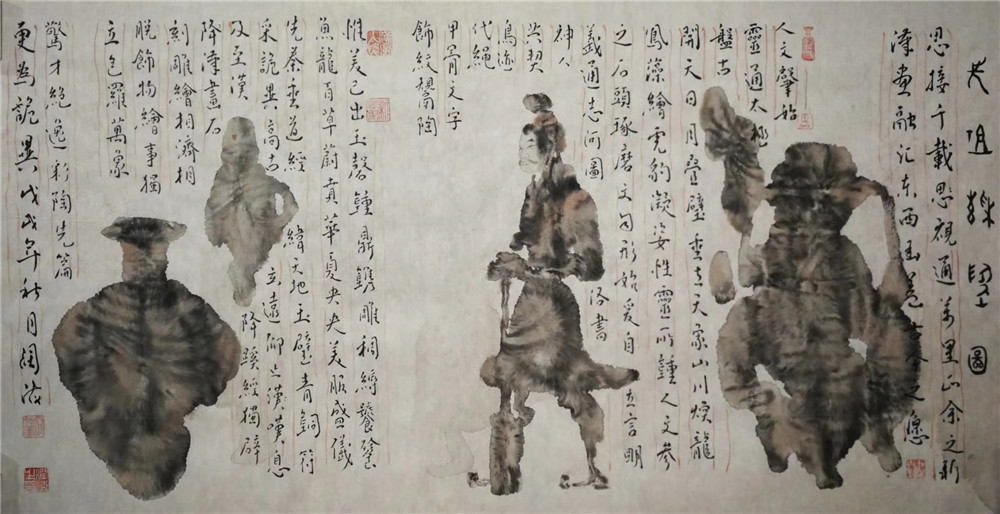 圖
思接千載思視通萬里正余之新
漢畫融汇东西函蓋古今之愿
人文肇始
靈通太極
盤古
開天日月疊璧垂天象山川煥龍
鳳藻繪虎豹凝姿性靈所鍾人文參
之石頭琢磨文句形始爰自 立言明
義通志河圖 洛書
神人
契
鳥迹
代繩
甲骨文字
飾紋規陶
惟美已出玉磬鐘鼎鐫雕稠綺饕餮
魚龍百草蔚賁華夏央央美服盛儀
先秦垂道經 緯天地玉璧青銅符
采詭異高古 立遠仰止漢嘆息
及至漢 降蹊經獨辟
降漢畫石
刻雕繪相濟相
脫飾物繪事獨
立包羅萬象
驚才絕逸彩陶先篇
更為詭異戊戌年秋月